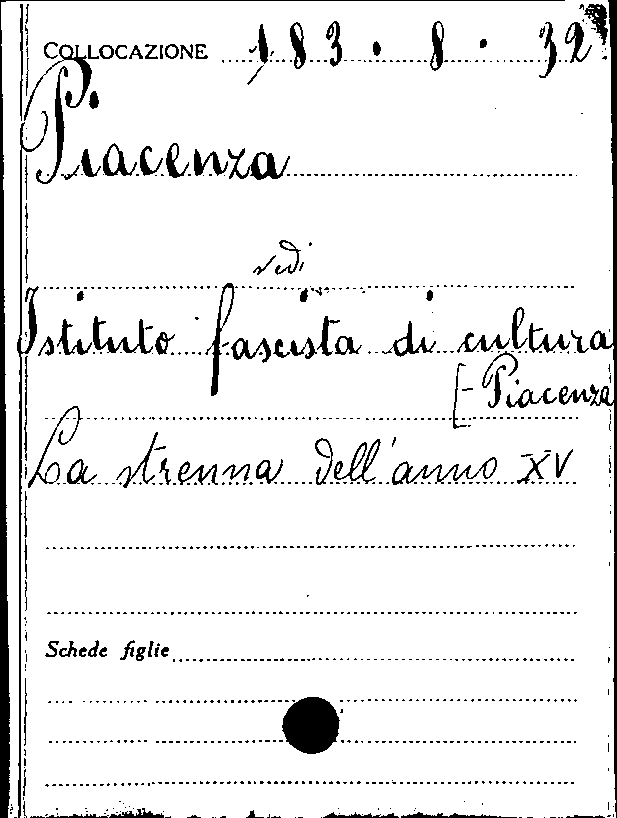 COLLOCAZIONE 183 . 8 . 32
Piacenza
vedi
Istituto fascista di cultura
[- Piacenza
La strenna dell'anno XV
Schede figlie